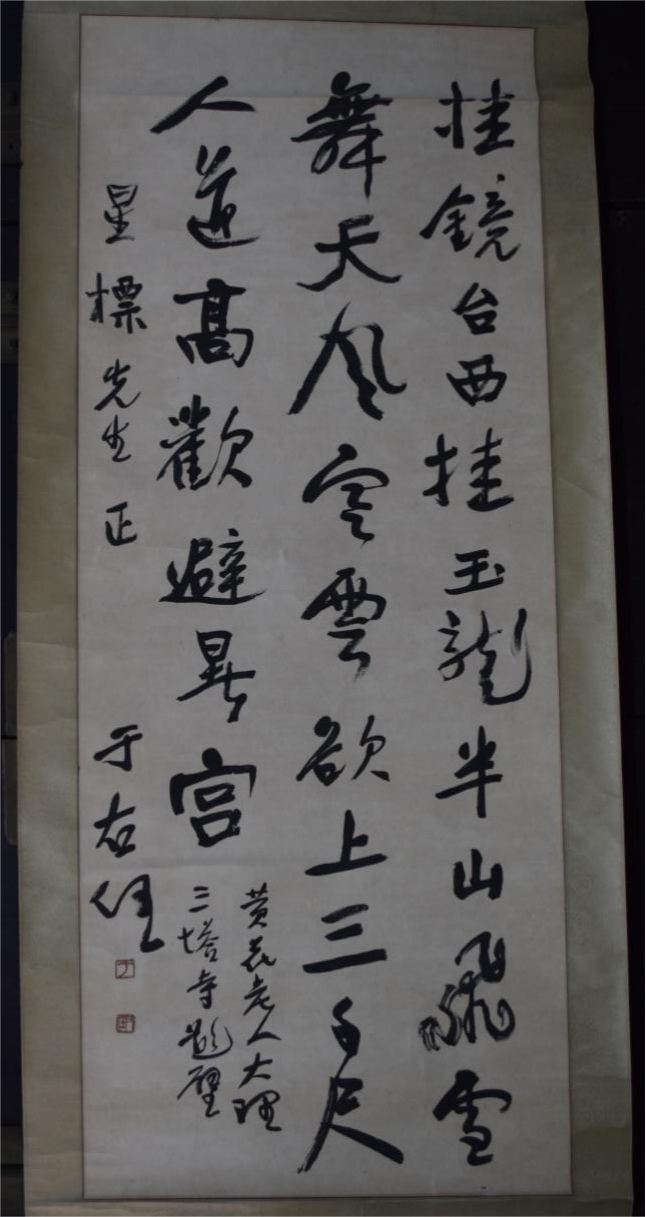 挂鏡台西挂玉龍半山飛雪
舞天風寒雲欲上三千尺
人道高歡避暑宮
黃華老人大理
三塔寺題壁
星標先生正
于右任